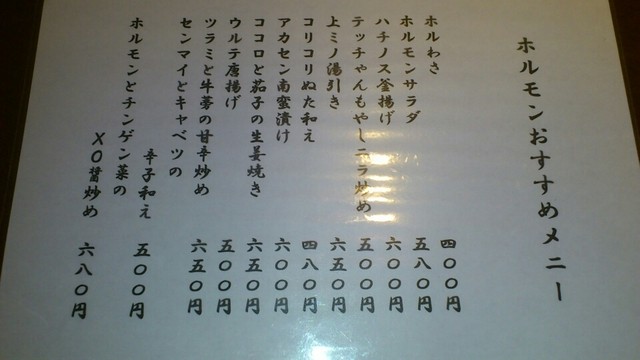 ホルモンおすすめメニー
ホルわさ 四〇〇円
ホルモンサラダ 五八〇円
ハチノス釜揚げ 六〇〇円
テッちゃんもやしニラ炒め 五〇〇円
上ミノ湯引き 六五〇円
コリコリぬた和え 四八〇円
アカセン南蛮漬け 六〇〇円
ココロと茄子の生姜焼き 六五〇円
ウルテ唐揚げ 五〇〇円
ツラミと牛蒡の甘辛炒め 六五〇円
センマイとキャベツの
辛子和え 五〇〇円
ホルモンとチンゲン菜の
XO醤炒め 六八〇円